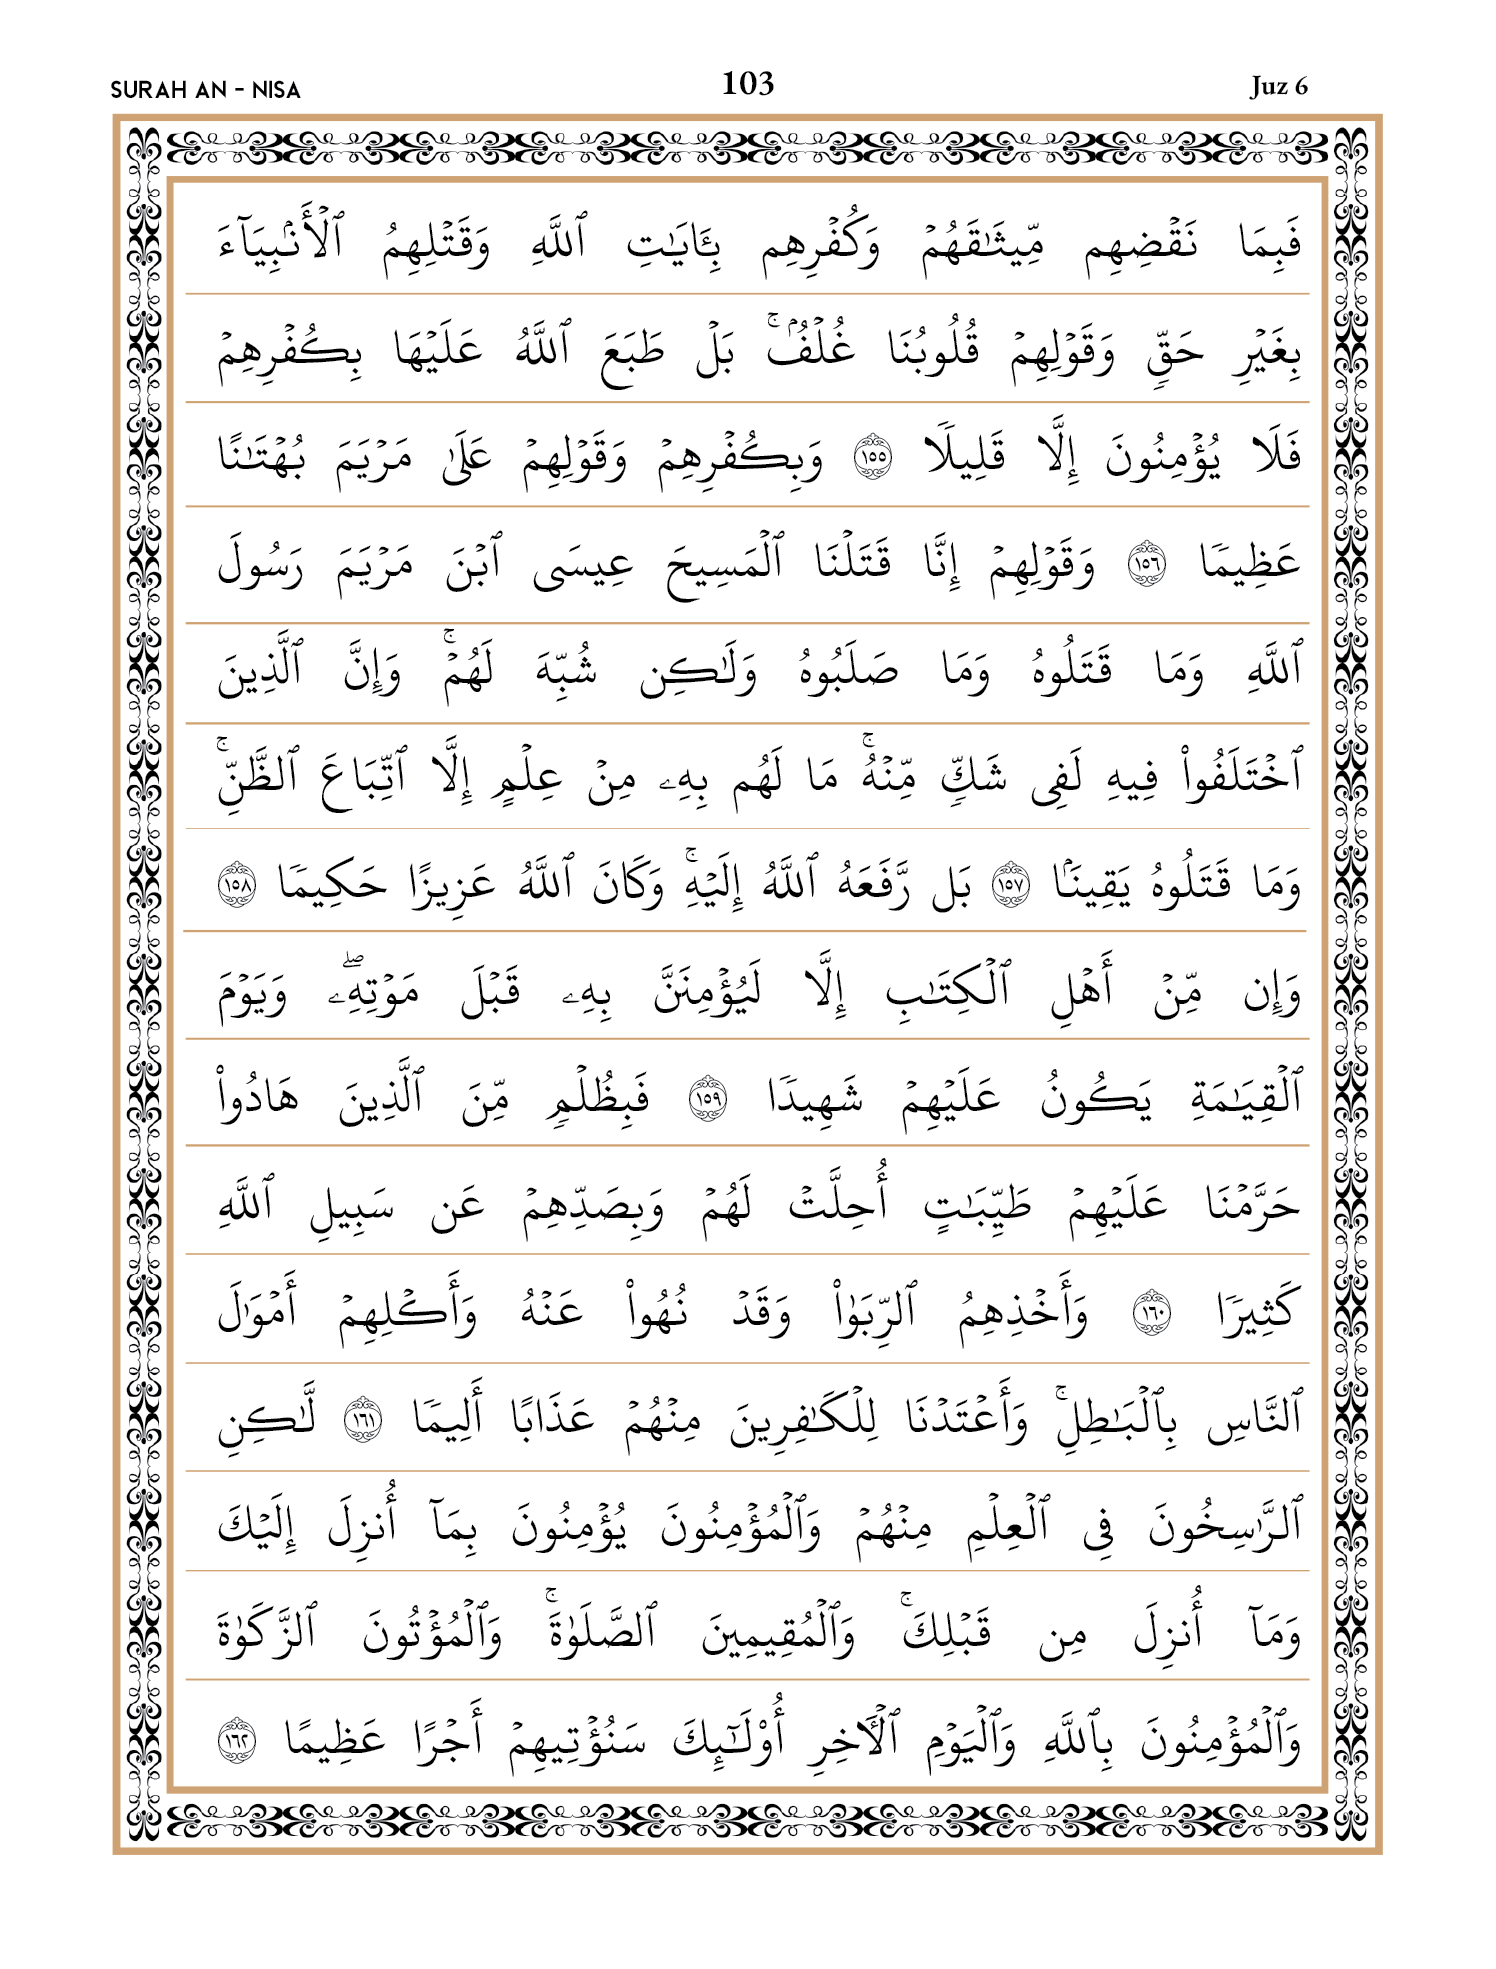 SURAH AN - NISA
103
Juz 6
فَبِمَا نَقْضِهِم مِّيثَٰقَهُمْ وَكُفْرِهِم بِـَٔايَٰتِ ٱللَّهِ وَقَتْلِهِمُ ٱلْأَنۢبِيَآءَ
بِغَيْرِ حَقٍّ وَقَوْلِهِمْ قُلُوبُنَا غُلْفٌۢ ۚ بَلْ طَبَعَ ٱللَّهُ عَلَيْهَا بِكُفْرِهِمْ
فَلَا يُؤْمِنُونَ إِلَّا قَلِيلًا ١٥٥ وَبِكُفْرِهِمْ وَقَوْلِهِمْ عَلَىٰ مَرْيَمَ بُهْتَٰنًا
عَظِيمًا ١٥٦ وَقَوْلِهِمْ إِنَّا قَتَلْنَا ٱلْمَسِيحَ عِيسَى ٱبْنَ مَرْيَمَ رَسُولَ
ٱللَّهِ وَمَا قَتَلُوهُ وَمَا صَلَبُوهُ وَلَٰكِن شُبِّهَ لَهُمْ ۚ وَإِنَّ ٱلَّذِينَ
ٱخْتَلَفُوا۟ فِيهِ لَفِى شَكٍّ مِّنْهُ ۚ مَا لَهُم بِهِۦ مِنْ عِلْمٍ إِلَّا ٱتِّبَاعَ ٱلظَّنِّ ۚ
وَمَا قَتَلُوهُ يَقِينًۢا ١٥٧ بَل رَّفَعَهُ ٱللَّهُ إِلَيْهِ ۚ وَكَانَ ٱللَّهُ عَزِيزًا حَكِيمًا ١٥٨
وَإِن مِّنْ أَهْلِ ٱلْكِتَٰبِ إِلَّا لَيُؤْمِنَنَّ بِهِۦ قَبْلَ مَوْتِهِۦ ۖ وَيَوْمَ
ٱلْقِيَٰمَةِ يَكُونُ عَلَيْهِمْ شَهِيدًا ١٥٩ فَبِظُلْمٍ مِّنَ ٱلَّذِينَ هَادُوا۟
حَرَّمْنَا عَلَيْهِمْ طَيِّبَٰتٍ أُحِلَّتْ لَهُمْ وَبِصَدِّهِمْ عَن سَبِيلِ ٱللَّهِ
كَثِيرًا ١٦٠ وَأَخْذِهِمُ ٱلرِّبَوٰا۟ وَقَدْ نُهُوا۟ عَنْهُ وَأَكْلِهِمْ أَمْوَٰلَ
ٱلنَّاسِ بِٱلْبَٰطِلِ ۚ وَأَعْتَدْنَا لِلْكَٰفِرِينَ مِنْهُمْ عَذَابًا أَلِيمًا ١٦١ لَّٰكِنِ
ٱلرَّٰسِخُونَ فِى ٱلْعِلْمِ مِنْهُمْ وَٱلْمُؤْمِنُونَ يُؤْمِنُونَ بِمَآ أُنزِلَ إِلَيْكَ
وَمَآ أُنزِلَ مِن قَبْلِكَ ۚ وَٱلْمُقِيمِينَ ٱلصَّلَوٰةَ ۚ وَٱلْمُؤْتُونَ ٱلزَّكَوٰةَ
وَٱلْمُؤْمِنُونَ بِٱللَّهِ وَٱلْيَوْمِ ٱلْـَٔاخِرِ أُو۟لَٰٓئِكَ سَنُؤْتِيهِمْ أَجْرًا عَظِيمًا ١٦٢